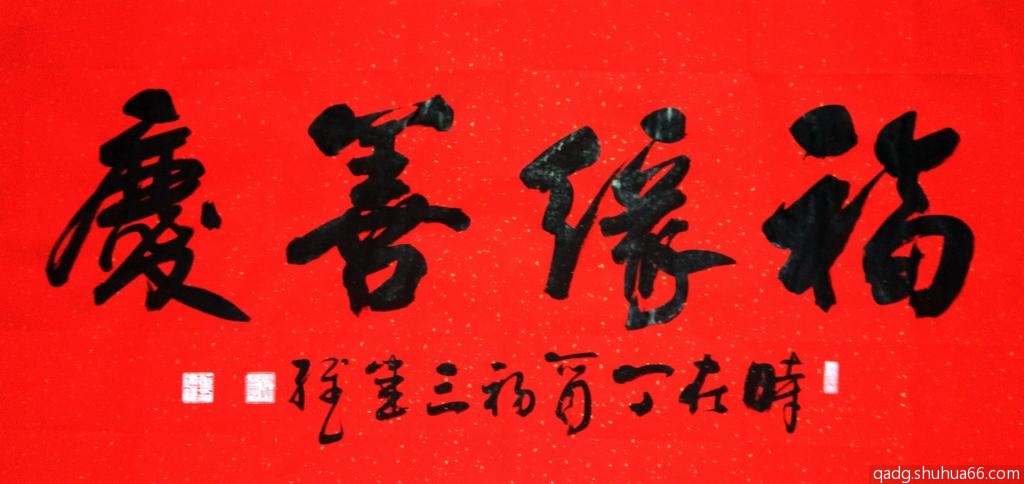 福緣善慶
時在丁酉福三堂
qadg.shuhua66.com